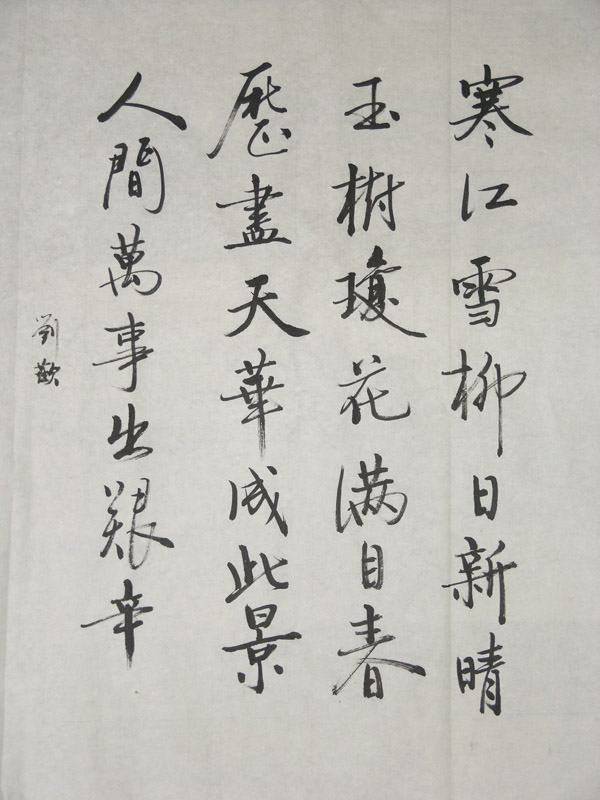 寒江雪柳日新晴
玉樹瓊花满目春
歷盡天華成此景
人間萬事出艱辛
劉歡